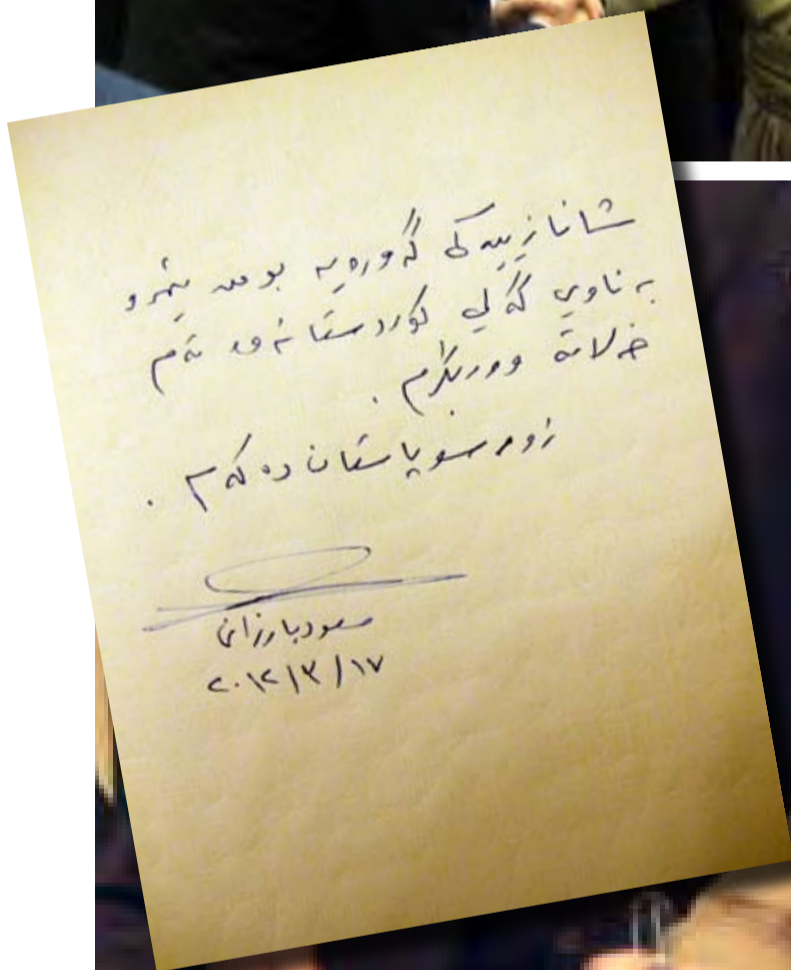 شانازییەکی گەورەیە بو من
بە ناوی گەلی کوردستانەوە ئەم
خەلاتە وەربگرم .
زور سوپاستان دەکەم .
مسعود بارزانی
٢٠١٢/٣/١٧